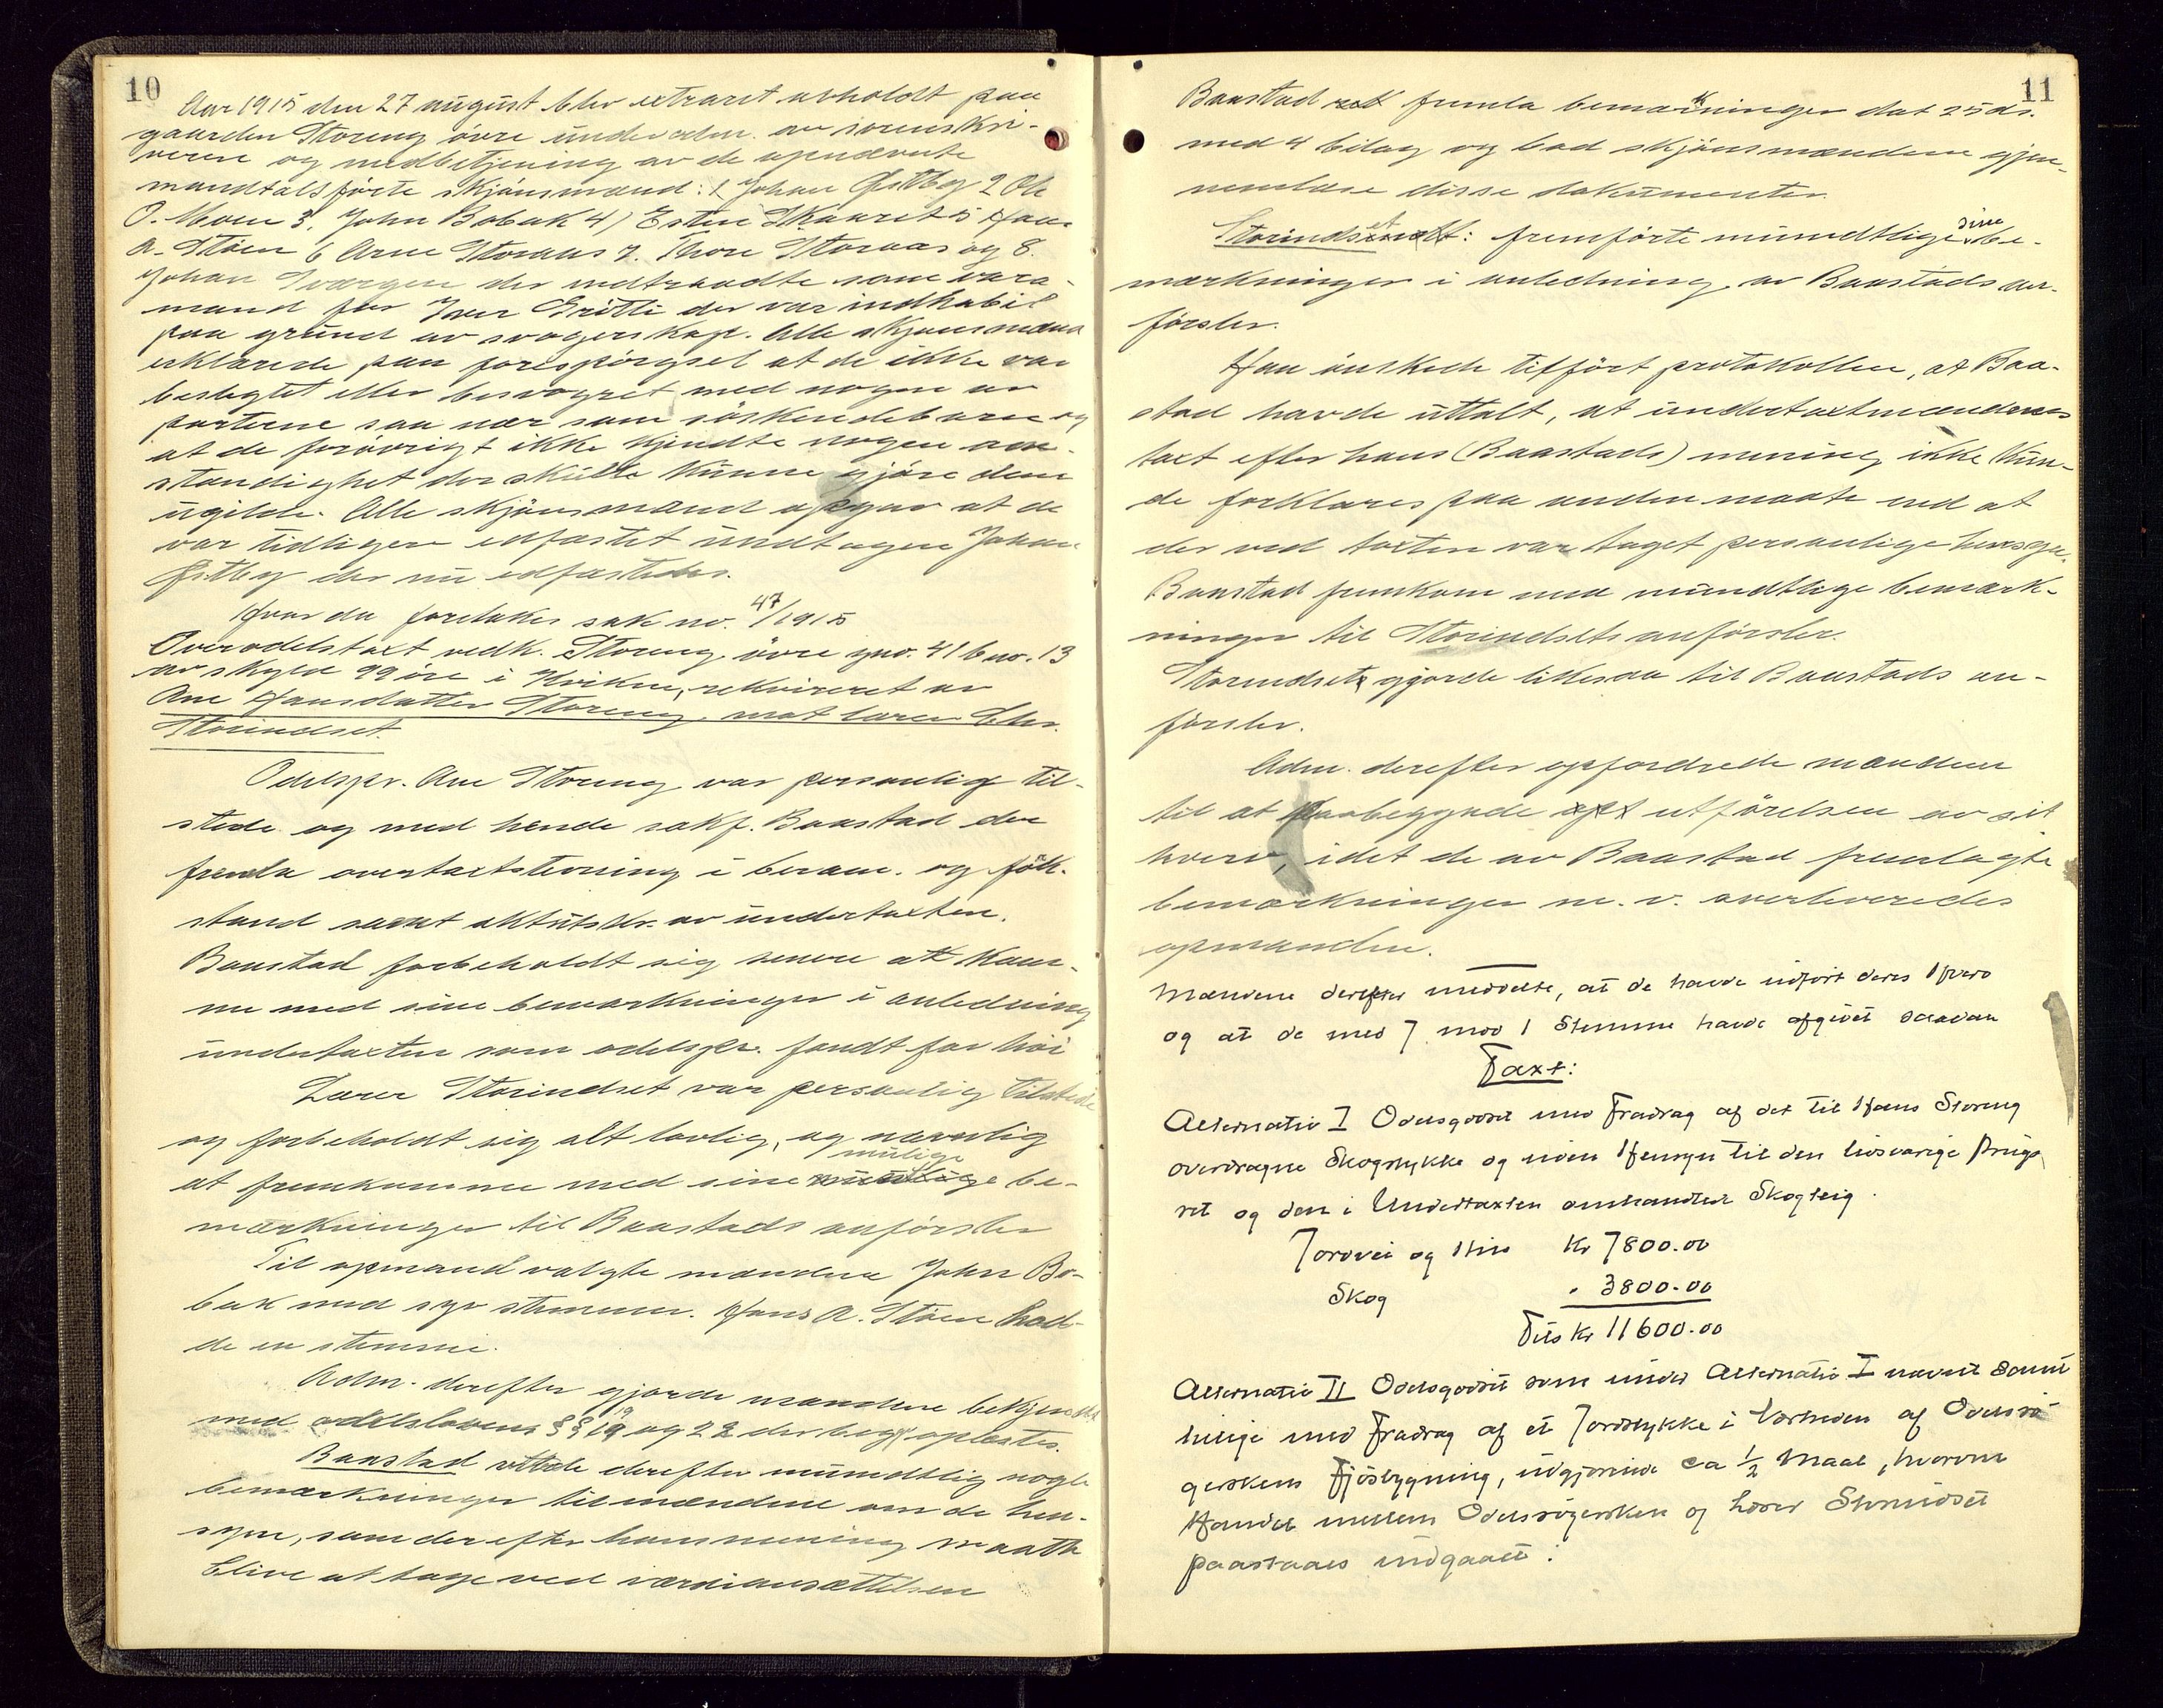 10
Aar 1915 den 27 august blev extraret avholdt paa
gaarden Storeng övre under adm. av sorenskri-
veren og medbetjening av de opnævnte
mandtalsförte skjönsmænd: 1 Johan Östby 2 Ole
O. Moen 3. John Bobak 4) Esten 5 Hans
A. Stöen 6 Arne Storaas 7. Thore Storaas og 8.
Johan der indtraadte som vara-
mand for Iver der var indhabil
paa grund av svogerskap. Alle skjönsmænd
erklærede paa forespörgsel at de ikke var
beslegtet eller besvogret med nogen av
parterne saa nær som söskendebarn og
at de forövrigt ikke kjendte nogen om-
stændighet der skulde kunne gjöre dem
ugilde. Alle skjönsmænd opgav at de
var tidligere edfæstet undtagen Johan
Östby der nu edfæstedes.
Hvor da foretokes sak no. 47/1915
Overodelstaxt vedk. Storeng övre gno. 41 bno. 13
av skyld 99 öre i Kvikne, rekvireret av
Ane Hansdatter Storeng mot lærer Chr.
Storindset.
Odelspr. Ane Storeng var personlig til-
stede og med hende sakf. Baastad der
fremla overtaxtstevning i beram. og fork.
stand samt aktutskr. av undertaxten.
Baastad forbeholdt sig senere at kom-
me med sine bemærkninger i anledning
undertaxten som odelspr. fandt for höi
Lærer Storindset var personlig tilstede
og forbeholdt sig alt lovlig, og navnlig
at fremkomme med sine mulige be-
mærkninger til Baastads anförsler
Til opmand valgte mændene John Bo-
bak med syv stemmer. Hans A. Stöen had-
de en stemme.
Adm. derefter gjorde mændene bekjendt
med odelslovens §§ 19 og 22 der begge oplæstes.
Baastad uttalte derefter mundtlig nogle
bemærkninger til mændene om de hen-
syn, som der efter hans mening maatte
blive at tage ved værdiansættelsen
11
Baastad fremla bemærkninger dat 25 ds.
med 4 bilag og bad skjönsmændene gjen-
nemlæse disse dokumenter.
Storindset: fremförte mundtlige sine be-
mærkninger i anledning av Baastads an-
försler.
Han önskede tilfört protokollen, at Baa-
stad havde uttalt, at undertaxtmændenes
taxt efter hans (Baastads) mening ikke kun-
de forklares paa anden maate end at
der ved taxten var taget personlige hensyn.
Baastad fremkom med mundtlige bemærk-
ninger til Storindsets anförsler.
Storindset gjorde likesaa til Baastads an-
försler.
Adm. derefter opfordrede mændene
til at paabegynde utförelsen av sit
hverv, idet de av Baastad fremlagte
bemærkninger m. v. overleveredes
opmanden.
Mændene derefter meddelte, at de havde udfört deres Hverv
og at de med 7 mod 1 Stemme havde afgivet saadan
Taxt:
Alternativ I Odelsgodset med Fradrag af det til Hans Storeng
overdragne Skogstykke og uden Hensyn til den livsvarige Brugs
ret og den i Undertaxten omhandlede Skogteig.
Jordvei og Hus Kr 7800.00
Skog " 3800.00
Tils Kr 11600.00
Alternativ II Odelsgodset som under Alternativ I nævnt samt
tillige med Fradrag af et Jordstykke i Nærheden af Odelssö-
gerskens Fjösbygning, udgjörende ca 1/2 Maal, hvorom
Handel mellem Odelssögersken og Lærer Storindset
paastaaes indgaaet: